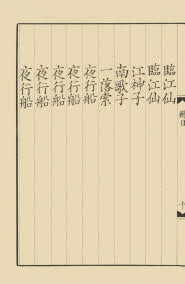 臨江仙
臨江仙
江神子
南歌子
一落索
夜行船
夜行船
夜行船
夜行船
夜行船